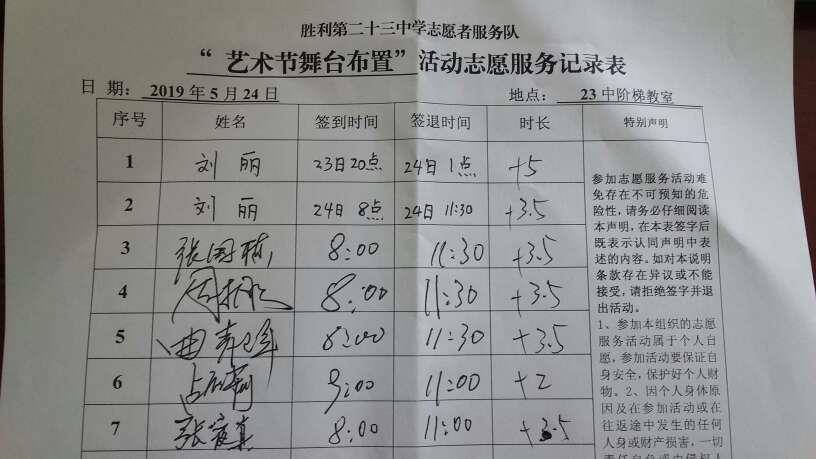 胜利第二十三中学志愿者服务队
“ 艺术节舞台布置” 活动志愿服务记录表
日 期: 2019 年 5 月 24 日 地点: 23 中阶梯教室
序号 姓名 签到时间 签退时间 时长 特别声明
1 刘 丽 23日20点 24日 1点 +5
2 刘 丽 24日 8点 24日 11:30 +3.5
3 张国栋 8:00 11:30 +3.5
4 8:00 11:30 +3.5
5 曲 8:00 11:30 +3.5
6 9:00 11:00 +2
7 张 8:00 11:00 +3.5
参加志愿服务活动难
免存在不可预知的危
险性, 请务必仔细阅读
本声明, 在本表签字后
既表示认同声明中表
述的内容。如对本说明
条款存在异议或不能
接受, 请拒绝签字并退
出活动。
1、参加本组织的志愿
服务活动属于个人自
愿, 参加活动要保证自
身安全, 保护好个人财
物。2、因个人身体原
因及在参加活动或在
往返途中发生的任何
人身或财产损害, 一切